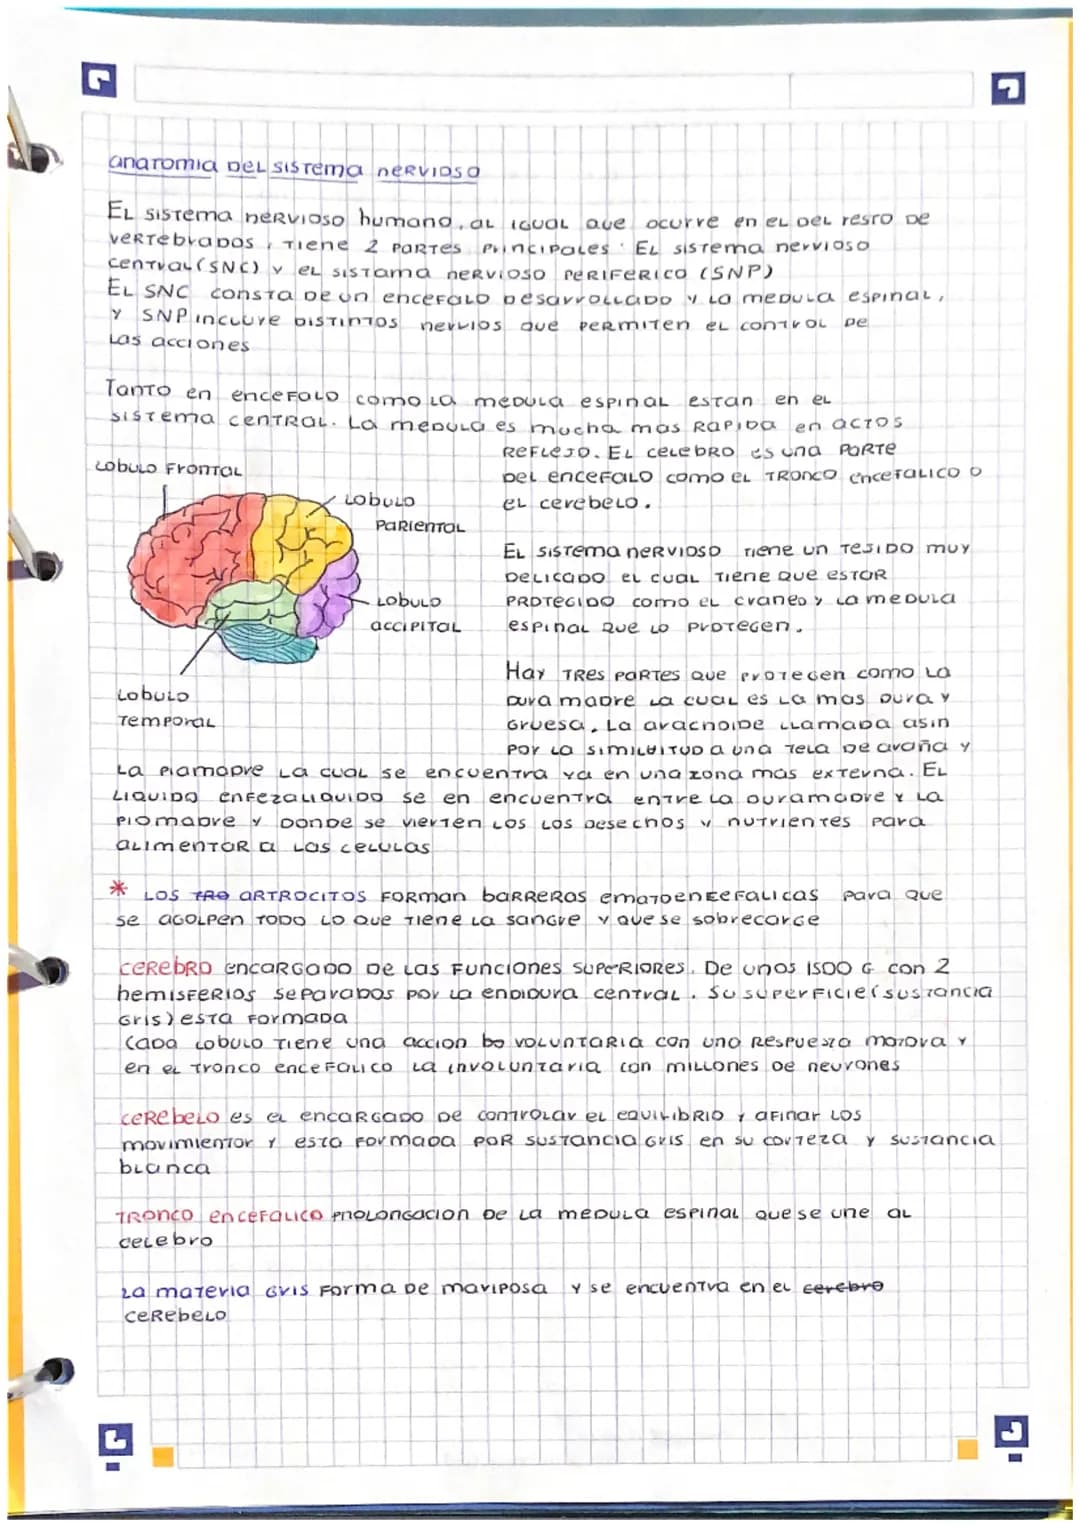 anatomia del sistema nervioso
El sistema nervioso humano, al igual que ocurre en el del resto de
vertebrados, tiene 2 partes principales: El sistema nervioso
central (SNC) y el sistama nervioso periferico (SNP)
El SNC consta de un encefalo desarrollado y la medula espinal,
y SNP incluye distintos nervios que permiten el control de
las acciones
Tanto en encefalo como la medula espinal estan en el
sistema central. La medula es mucha mas rapida en actos
reflejo. El celebro es una parte
del encefalo como el tronco encefalico o
el cerebelo.
Lobulo Frontal
Lobulo
Pariental
Lobulo
accipital
Lobulo
Temporal
El sistema nervioso tiene un tejido muy
delicado el cual tiene que estar
protegido como el craneo y la medula
espinal que lo protegen.
Hay tres partes que protegen como la
dura madre la cual es la mas dura y
gruesa. La aracnoide llamada asin
por la similitud a una tela de araña y
La piamadre la cual se encuentra ya en una zona mas externa. El
liquido enfezaliquido se en encuentra entre la duramadre y la
piomadre y donde se vierten los los desechos y nutrientes para
alimentar a las celulas
* Los artrocitos forman barreras ematoencefalicas para que
se agolpen todo lo que tiene la sangre y que se sobrecarge
cerebro encargado de las funciones superiores. De unos 1500 G con 2
hemisferios separados por la endidura central. Su superficie (sustancia
gris) esta formada
Cada lobulo tiene una accion bo voluntaria con una respuesta motora y
en el tronco encefalico la involuntaria con millones de neuronas
cerebelo es el encargado de controlar el equilibrio y afinar los
movimientor y esta formada por sustancia gris en su corteza y sustancia
blanca
Tronco encefalico prolongacion de la medula espinal que se une al
celebro
La materia gris forma de mariposa y se encuentra en el cerebro
cerebelo